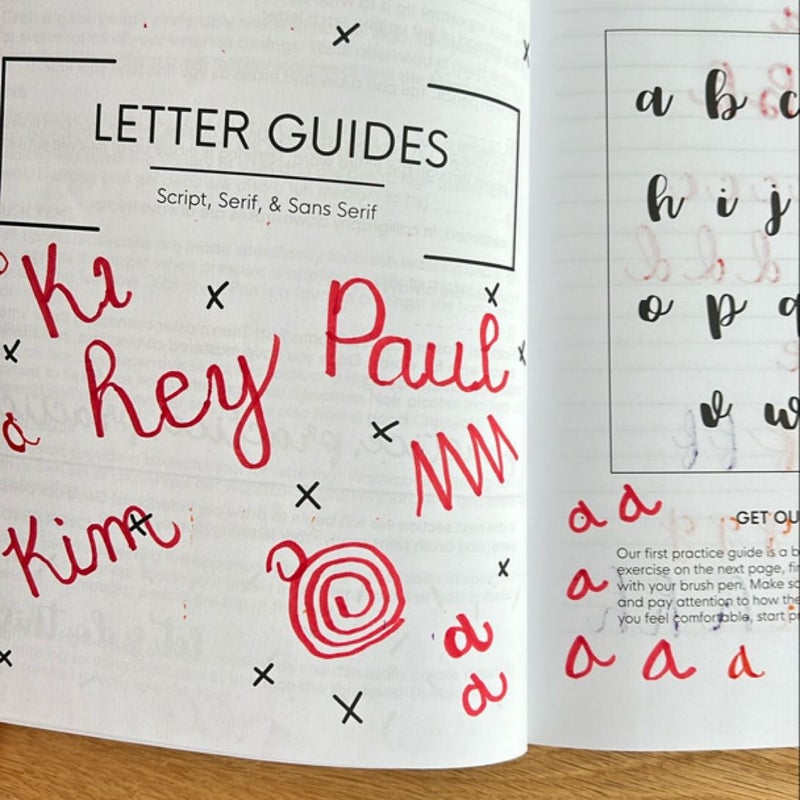 LETTER GUIDES
Script, Serif, & Sans Serif
Ki
Paul
hey
a
Kim
a
a
a b c
h i j
o p q
v w
a a
GET OU
a
Our first practice guide is a b
exercise on the next page, fi
with your brush pen. Make s
and pay attention to how the
you feel comfortable, start p
a a a